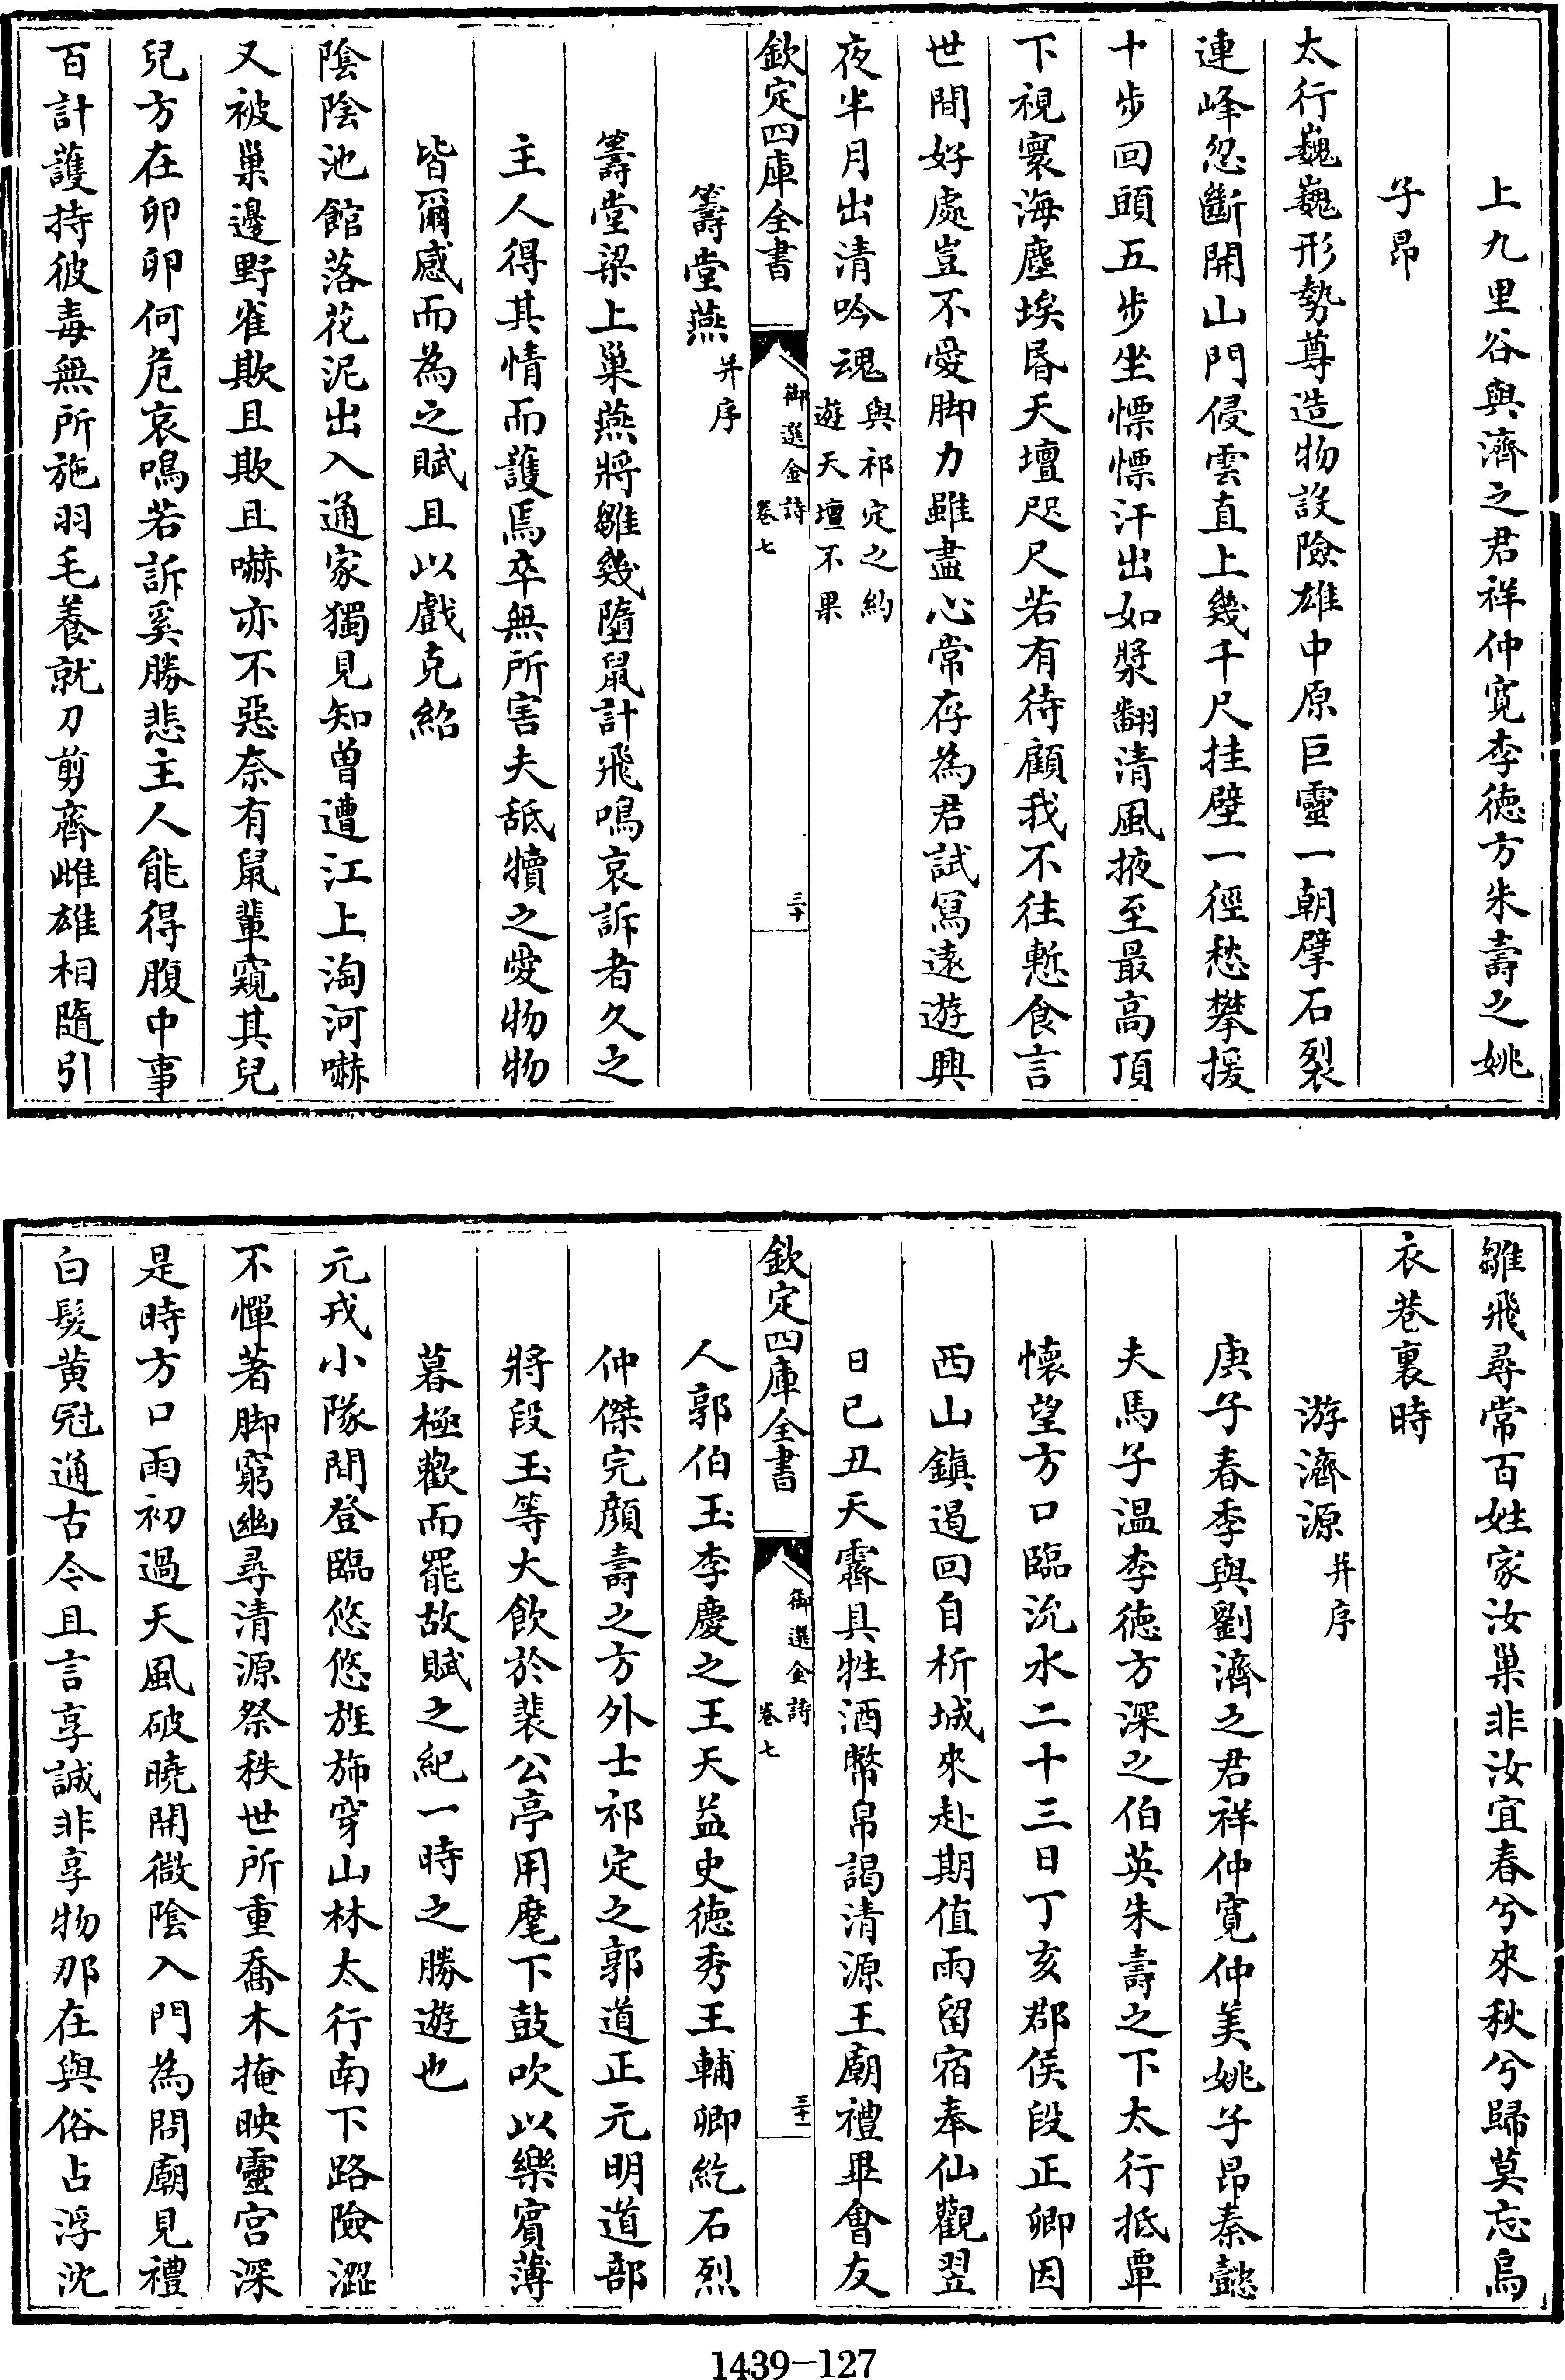 上九里谷與濟之君祥仲寛李徳方朱壽之姚
子昂
太行巍巍形勢尊造物設險雄中原巨靈一朝擘石裂
連峰忽斷開山門侵雲直上幾千尺挂壁一徑愁攀援
十步回頭五步坐慓慓汗出如漿翻清風掖至最高頂
下視寰海塵埃昏天壇咫尺若有待顧我不往慙食言
世間好處豈不愛脚力雖盡心常存為君試寫逺遊興
夜半月出清吟魂與祁定之約
遊天壇不果
欽定四庫全書
御選金詩
卷七
三十
籌堂燕并序
籌堂梁上巢燕將雛幾墮鼠計飛鳴哀訴者久之
主人得其情而護焉卒無所害夫舐犢之愛物物
皆爾感而為之賦且以戲克紹
陰陰池館落花泥出入通家獨見知曽遭江上淘河嚇
又被巢邊野雀欺且欺且嚇亦不惡奈有鼠輩窺其兒
兒方在卵卵何危哀鳴若訴奚勝悲主人能得腹中事
百計䕶持彼毒無所施羽毛養就刀剪齊雌雄相隨引
雛飛尋常百姓家汝巢非汝宜春兮來秋兮歸莫忘烏
衣巷裏時
游濟源并序
庚子春季與劉濟之君祥仲寛仲美姚子昂秦懿
夫馬子温李徳方深之伯英朱壽之下太行抵覃
懐望方口臨沇水二十三日丁亥郡侯段正卿因
西山鎮遏回自析城來赴期值雨留宿奉仙觀翌
日已丑天霽具牲酒幣帛謁清源王廟禮畢會友
欽定四庫全書
御選金詩
卷七
三十一
人郭伯玉李慶之王天益史徳秀王輔卿紇石烈
仲傑完顔壽之方外士祁定之郭道正元明道部
將段玉等大飲於裴公亭用麾下鼓吹以樂賓薄
暮極歡而罷故賦之紀一時之勝遊也
元戎小隊間登臨悠悠旌斾穿山林太行南下路險澀
不憚著脚窮幽尋清源祭秩世所重喬木掩映靈宫深
是時方口雨初過天風破曉開微陰入門為問廟見禮
白髮黄冠通古今且言享誠非享物那在與俗占浮沈
1439-127